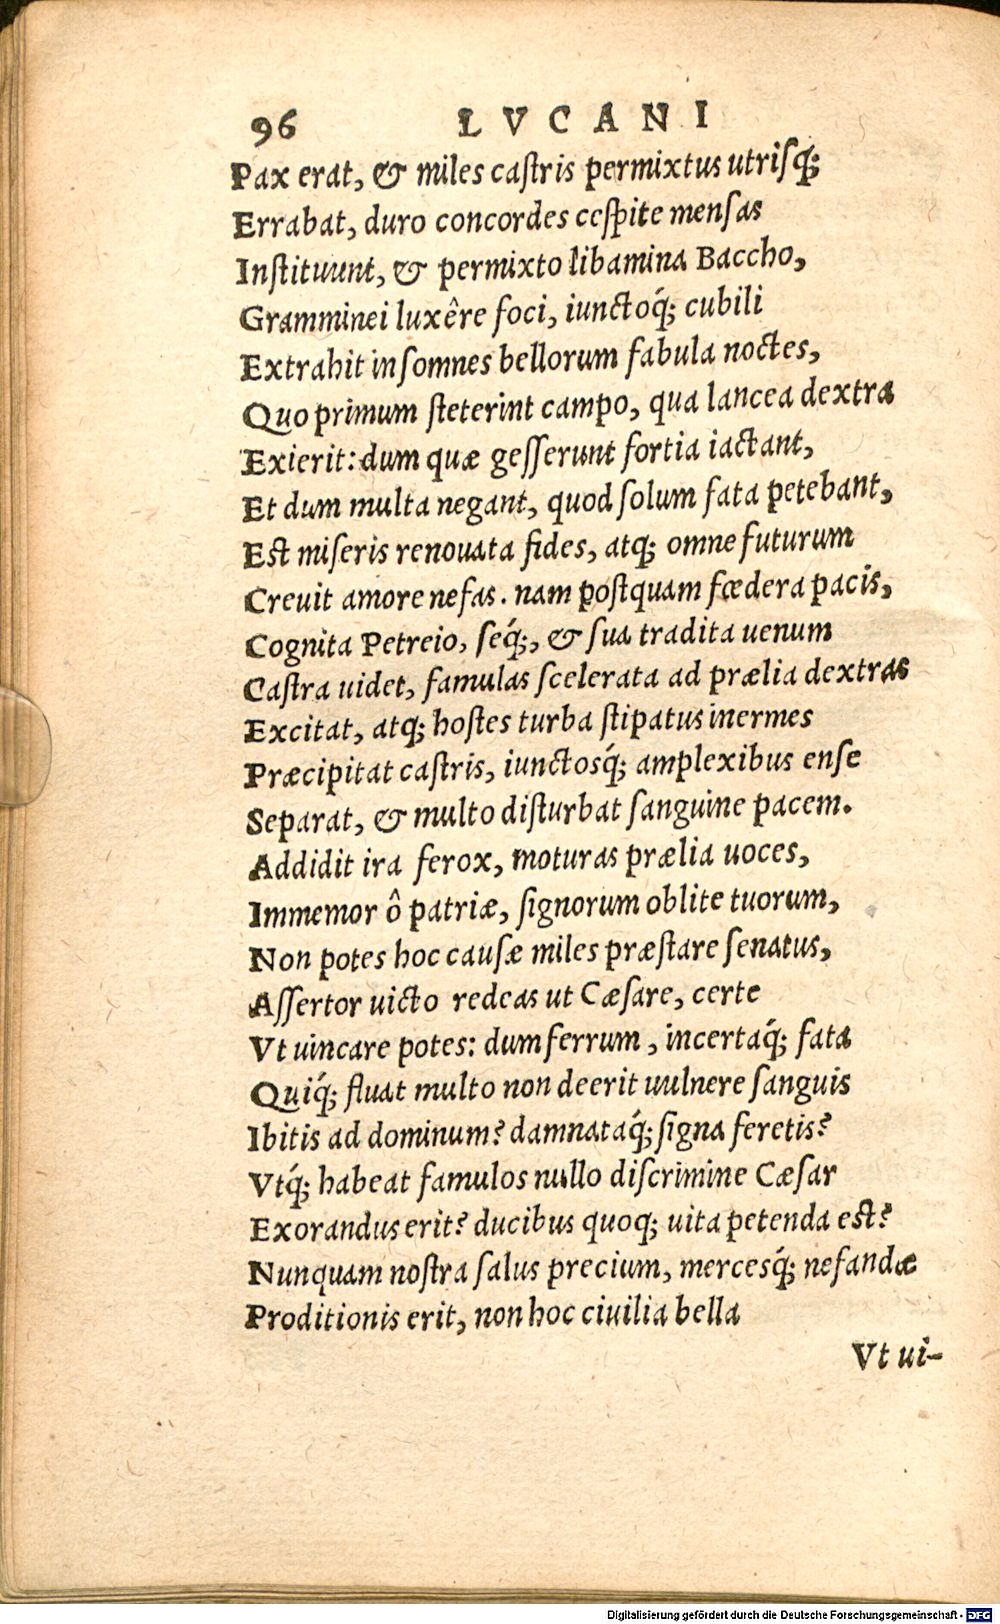 96 LVCANI
Pax erat, & miles caſtris permixtus utriſq́;
Errabat, duro concordes ceſpite menſas
Inſtituunt, & permixto libamina Baccho,
Gramminei luxêre foci, iunctoq́; cubili
Extrahit inſomnes bellorum fabula noctes,
Quo primum ſteterint campo, qua lancea dextra
Exierit: dum quæ geſſerunt fortia iactant,
Et dum multa negant, quod ſolum fata petebant,
Eſt miſeris renouata fides, atq; omne futurum
Creuit amore nefas. nam poſtquam fœdera pacis,
Cognita Petreio, ſeq́;, & ſua tradita uenum
Caſtra uidet, famulas scelerata ad prælia dextras
Excitat, atq; hoſtes turba ſtipatus inermes
Præcipitat caſtris, iunctosq́; amplexibus enſe
Separat, & multo diſturbat ſanguine pacem.
Addidit ira ferox, moturas prælia uoces,
Immemor ô patriæ, ſignorum oblite tuorum,
Non potes hoc cauſæ miles præſtare ſenatus,
Aſſertor uicto redeas ut Cæſare, certe
Vt uincare potes: dum ferrum, incertaq́; fata
Quiq́; fluat multo non deerit uulnere ſanguis
Ibitis ad dominum? damnataq́; ſigna feretis?
Vtq́; habeat famulos nullo diſcrimine Cæſar
Exorandus erit? ducibus quoq; uita petenda eſt?
Nunquam noſtra ſalus precium, mercesq́; nefandæ
Proditionis erit, non hoc ciuilia bella
Vt ui-
Digitalisierung gefördert durch die Deutsche Forschungsgemeinschaft - DFG